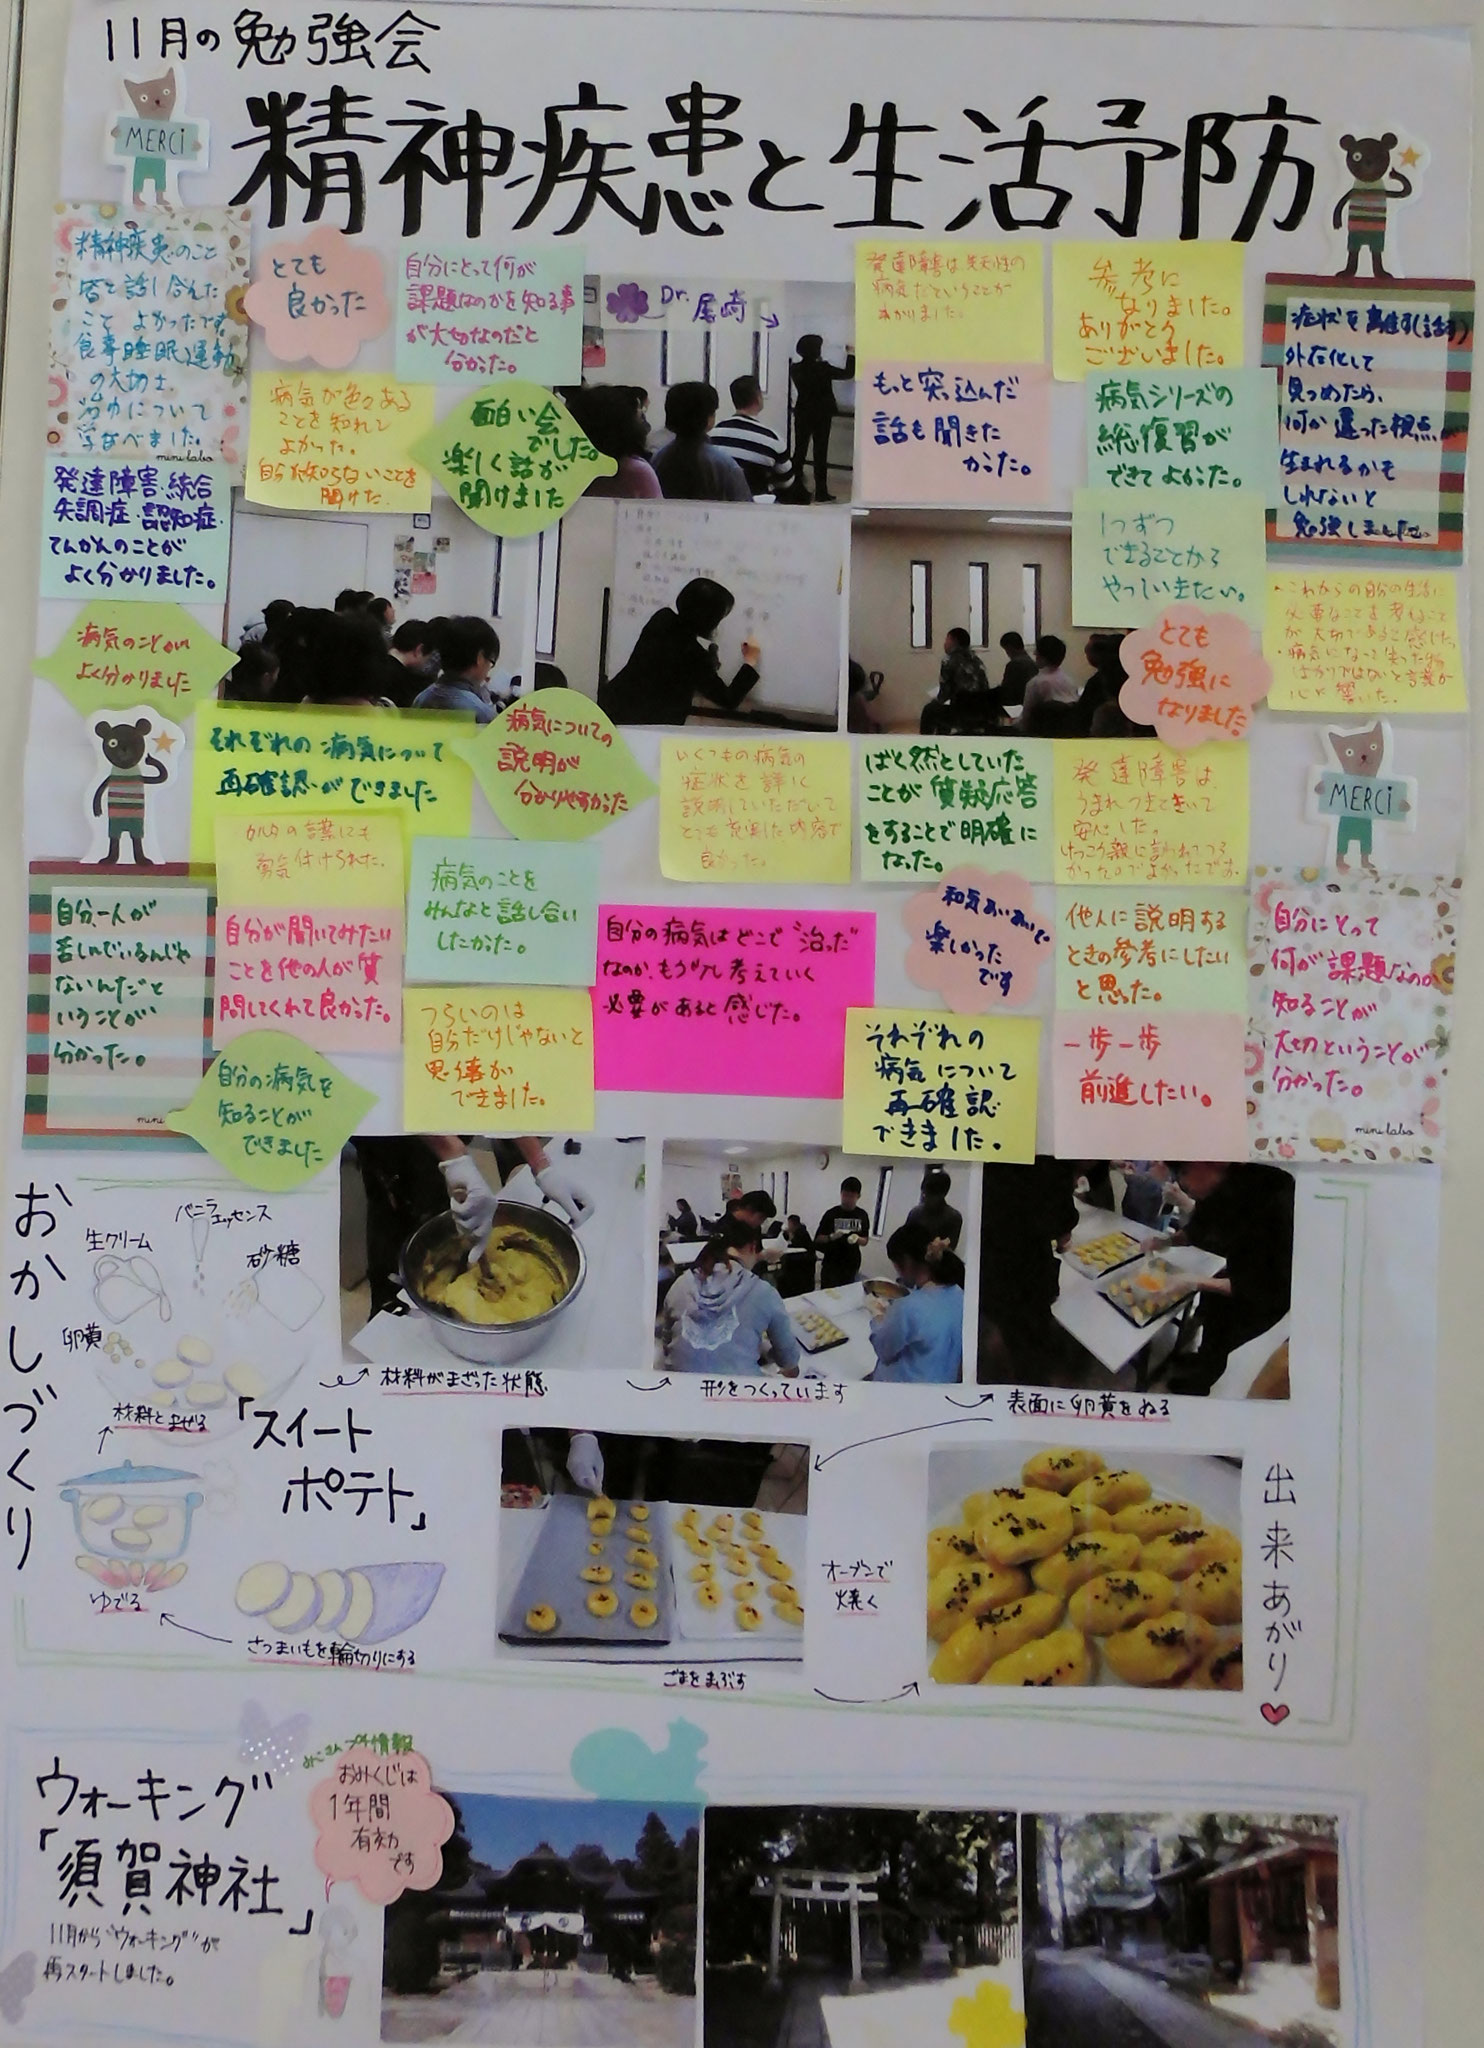 11月の勉強会
精神疾患と生活予防
MERCi
精神疾患のこと
皆と話し合えた
こと よかったです
食事睡眠運動
の大切さ、
治りについて
学なべました。
mini labo
とても
良かった
自分にとって何が
課題なのかを知る事
が大切なのだと
分かった。
Dr. 尾崎
発達障害は先天性の
病気だということが
わかりました。
参考に
なりました。
ありがとう
ございました。
症状を離す(話す)
外在化して
見つめたら、
何か違った視点が
生まれるかも
しれないと
勉強しました。
病気が色々ある
ことを知れて
よかった。
自分が知らないことを
聞けた。
面白い会
でした。
楽しく話が
聞けました
もっと突っ込んだ
話も聞きた
かった。
病気シリーズの
総復習が
できてよかった。
発達障害・統合
失調症・認知症・
てんかんのことが
よく分かりました。
1つずつ
できることから
やっていきたい。
・これからの自分の生活に
必要なことを考えることが
が大切であると感じた。
・病気になって失った物
ばかりではないと言葉が
心に響いた。
病気のことが
よく分かりました
とても
勉強に
なりました
それぞれの病気について
再確認ができました
病気についての
説明が
分かりやすかった
いくつもの病気の
症状を詳しく
説明していただいて
とても充実した内容で
良かった。
ばく然だとしていた
ことが質疑応答
をすることで明確に
なった。
発達障害は、
うまれつきときいて
安心した。
けっこう親に言われてつら
かったのでよかったです。
MERCi
の言葉にも
勇気付けられた。
病気のことを
みんなと話し合い
したかった。
自分、一人が
苦しんでいるんじゃ
ないんだと
いうことが
分かった。
mini
自分が聞いてみたい
ことを他の人が質
問してくれて良かった。
自分の病気はどこで“治った”
なのか、もう少し考えていく
必要があると感じた。
和気あいあいで
楽しかった
です
他人に説明する
ときの参考にしたい
と思った。
自分にとって
何が課題なのか
知ることが
大切ということが
分かった。
mini labo
つらいのは
自分だけじゃないと
思う事が
できました。
自分の病気を
知ることが
できました
それぞれの
病気について
再確認
できました。
一歩一歩
前進したい。
おかしづくり
「スイート
ポテト」
バニラエッセンス
生クリーム
砂糖
卵黄
材料とまぜる
ゆでる
さつまいもを輪切りにする
材料がまざった状態
形をつくっています
表面に卵黄をぬる
ごまをまぶす
オーブンで
焼く
出来あがり
ウォーキング
「須賀神社」
11月から“ウォーキング”が
再スタートしました。
みこさんプチ情報
おみくじは
1年間
有効
です